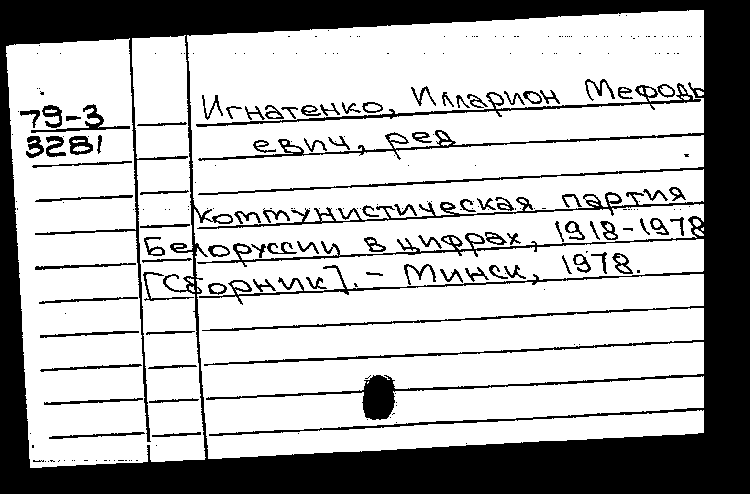 79-3
3281
Игнатенко, Илларион Мефодь
евич, ред
Коммунистическая партия
Белоруссии в цифрах, 1918-1978
[Сборник]. - Минск, 1978.